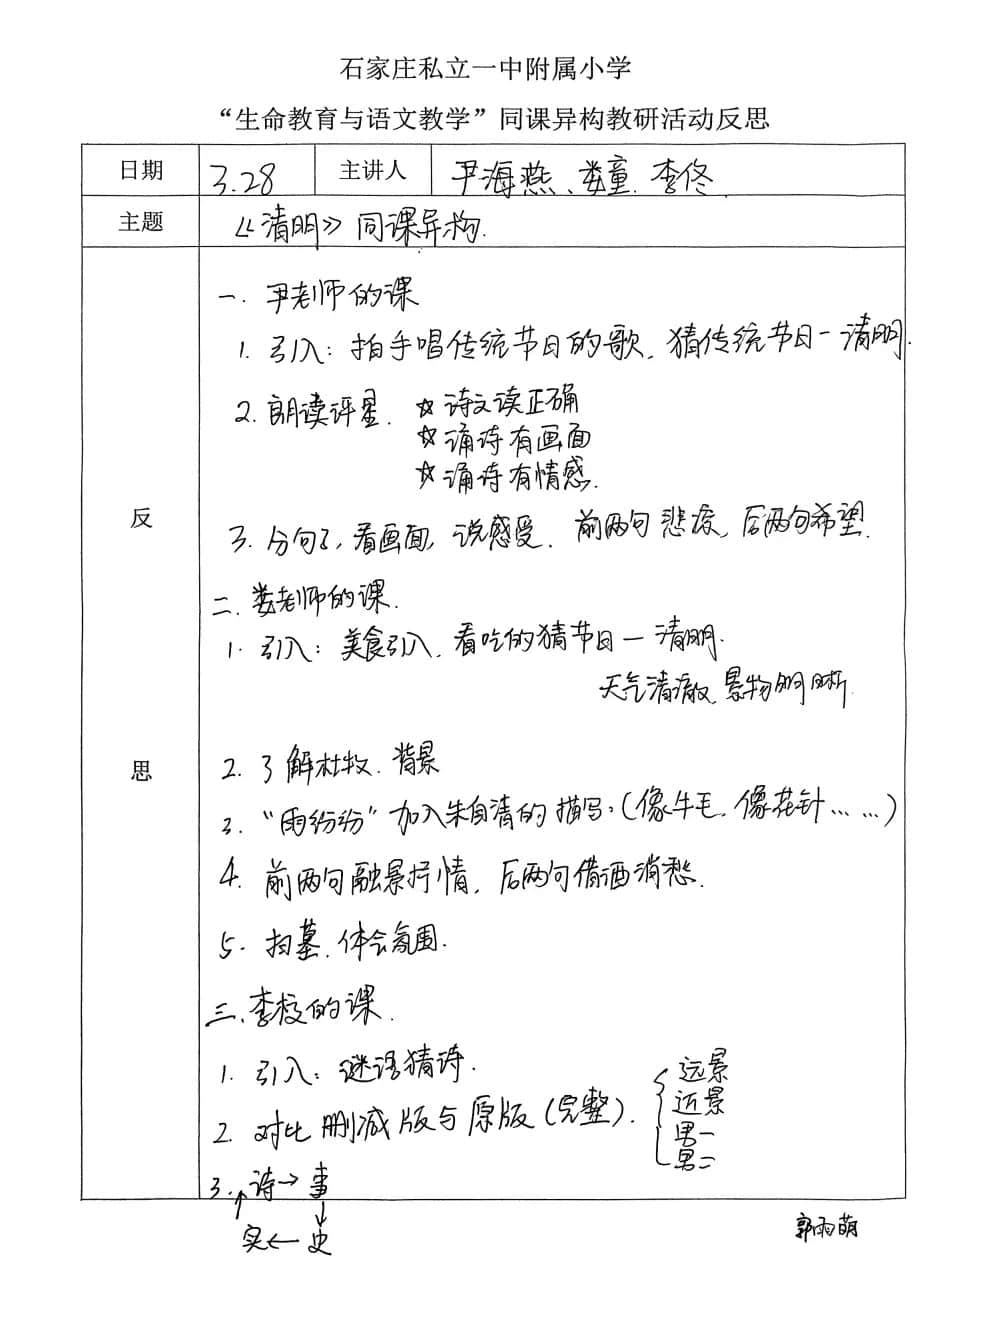 石家庄私立一中附属小学
“生命教育与语文教学”同课异构教研活动反思
日期 3.28 主讲人 尹海燕、娄童、李佟
主题 《清明》同课异构.
反思
一. 尹老师的课
1. 引入: 拍手唱传统节日的歌, 猜传统节日—清明.
2. 朗读评星. ☆诗文读正确
☆诵诗有画面
☆诵诗有情感.
3. 分句子, 看画面, 说感受. 前两句悲凉, 后两句希望.
二. 娄老师的课.
1. 引入: 美食引入, 看吃的猜节日—清明.
天气清澈, 景物明晰.
2. 了解杜牧. 背景
3. “雨纷纷”加入朱自清的描写: (像牛毛, 像花针……)
4. 前两句融景抒情, 后两句借酒消愁.
5. 扫墓. 体会氛围.
三. 李校的课.
1. 引入: 谜语猜诗.
2. 对比删减版与原版(完整). { 远景
近景
男一
男二
3. 诗→事
↑ ↓
实←史
郭雨萌